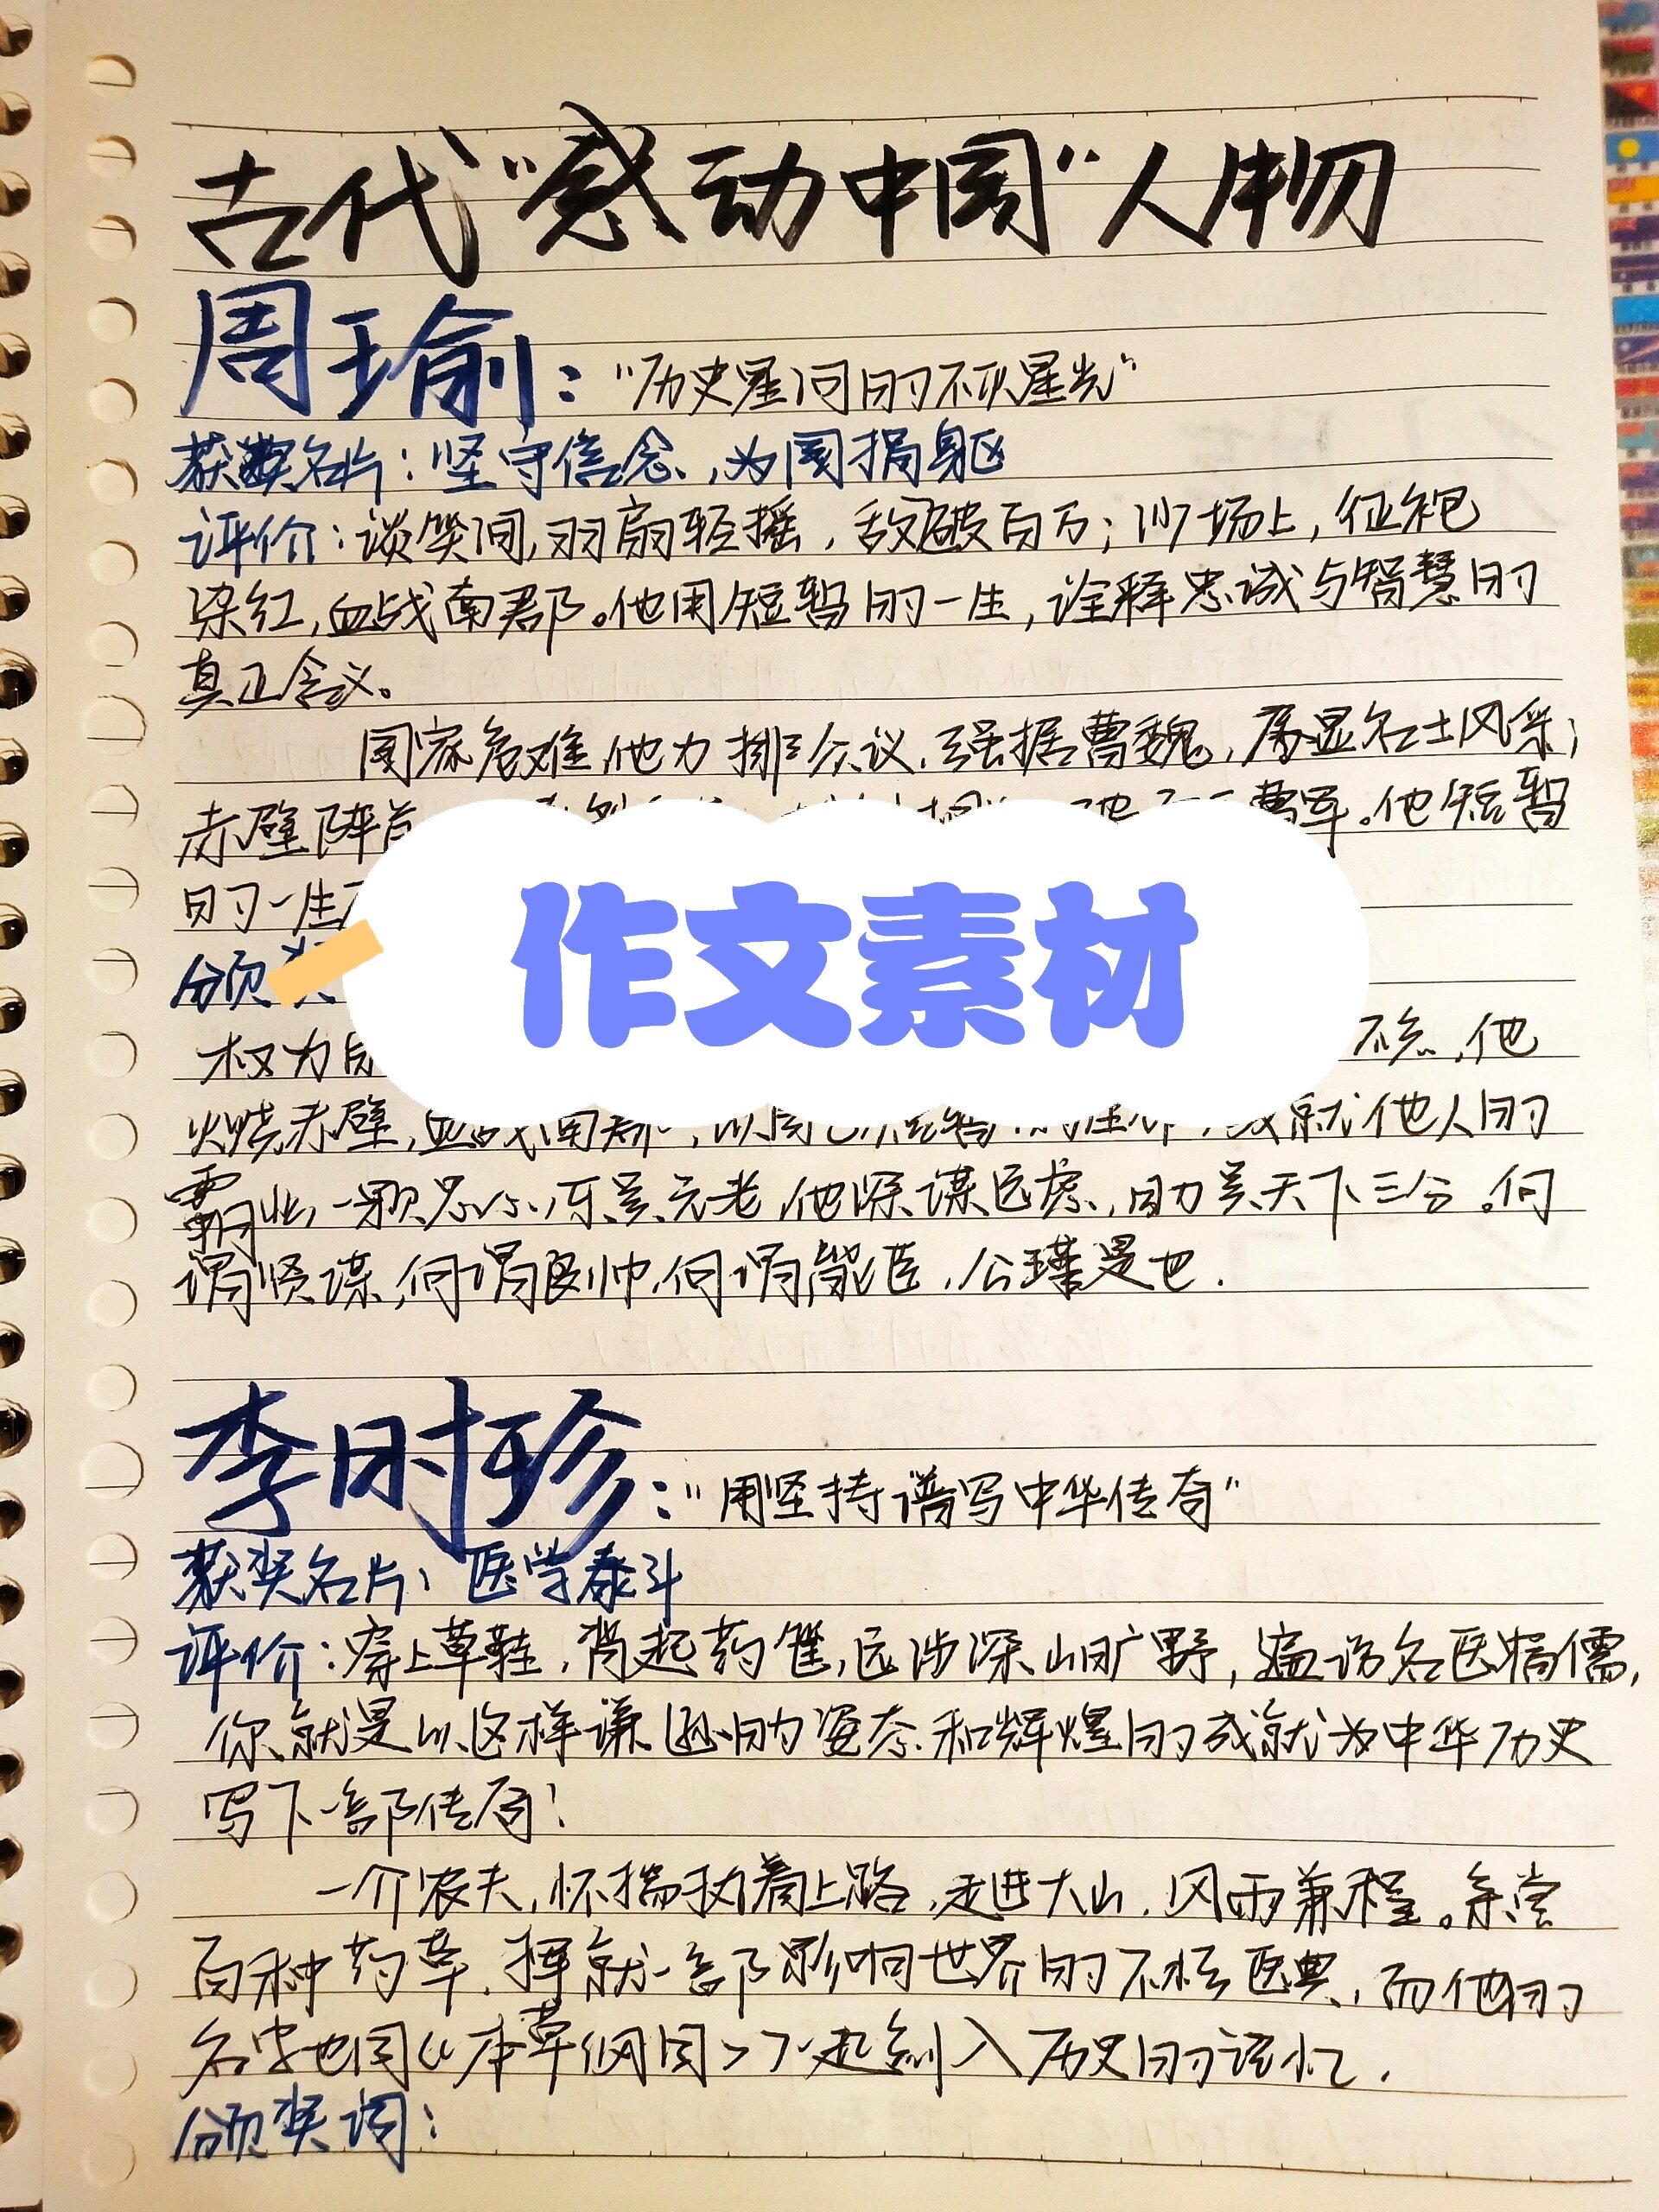 古代“感动中国”人物
周瑜：“历史星河的不灭星光”
获奖名片：坚守信念，为国捐躯
评价：谈笑间，羽扇轻摇，敌破百万；沙场上，征袍
染红，血战南郡。他用短暂的一生，诠释忠诚与智慧的
真正含义。
国家危难，他力排众议，强据曹魏，尽显名士风采；
赤壁阵前 曹军。他短暂
的一生
作文素材
颁奖
权为 他
火烧赤壁，血战南郡，以 短暂 成就他人的
霸业，一颗忠心，东吴元老，他深谋远虑，助吴天下三分。何
谓贤谋，何谓良帅，何谓能臣，公瑾是也.
李时珍：“用坚持谱写中华传奇”
获奖名片：医学泰斗
评价：穿上草鞋，背起药篓，远涉深山旷野，遍访名医宿儒，
你就是以这样谦逊的姿态和辉煌的成就为中华历史
写下一部传奇！
一介农夫，怀揣执着上路，走进大山，风雨兼程。亲尝
百种药草，挥就一部影响世界的不朽医典，而他的
名字也同《本草纲目》一起刻入历史的记忆.
颁奖词：